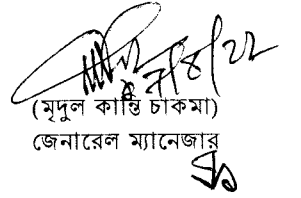 (মৃদুল কান্তি চাকমা)
জেনারেল ম্যানেজার